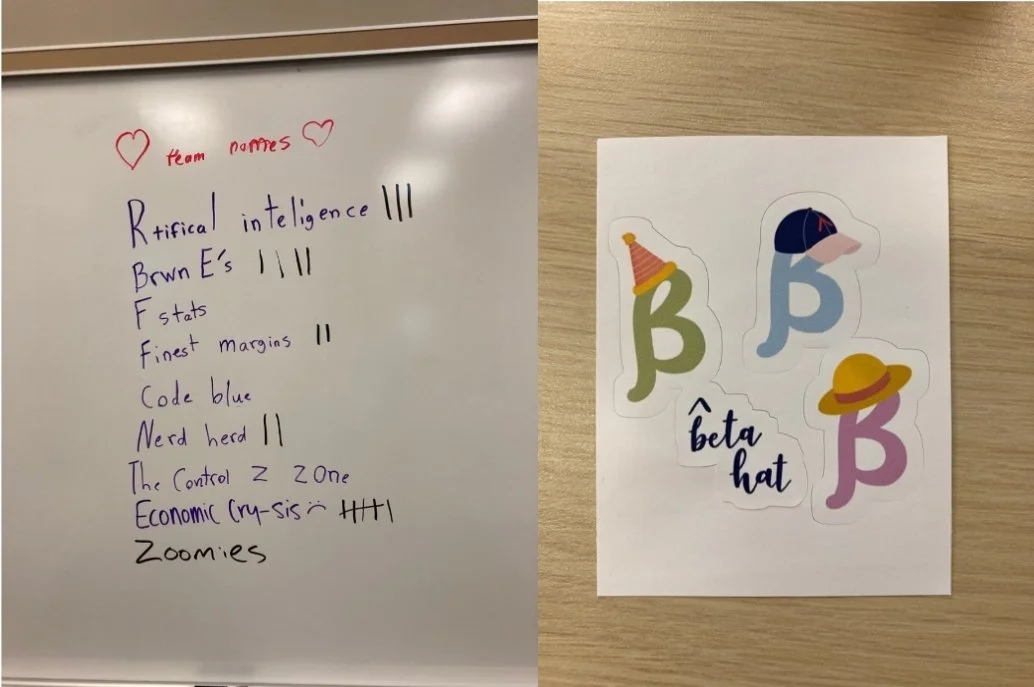 ♡ team names ♡
Rtifical inteligence |||
Brwn E's ||||
F stats
Finest margins ||
Code blue
Nerd herd ||
The Control Z ZOne
Economic Cry-sis :( 卌|
Zoomies
β
β
β
b̂eta
hat